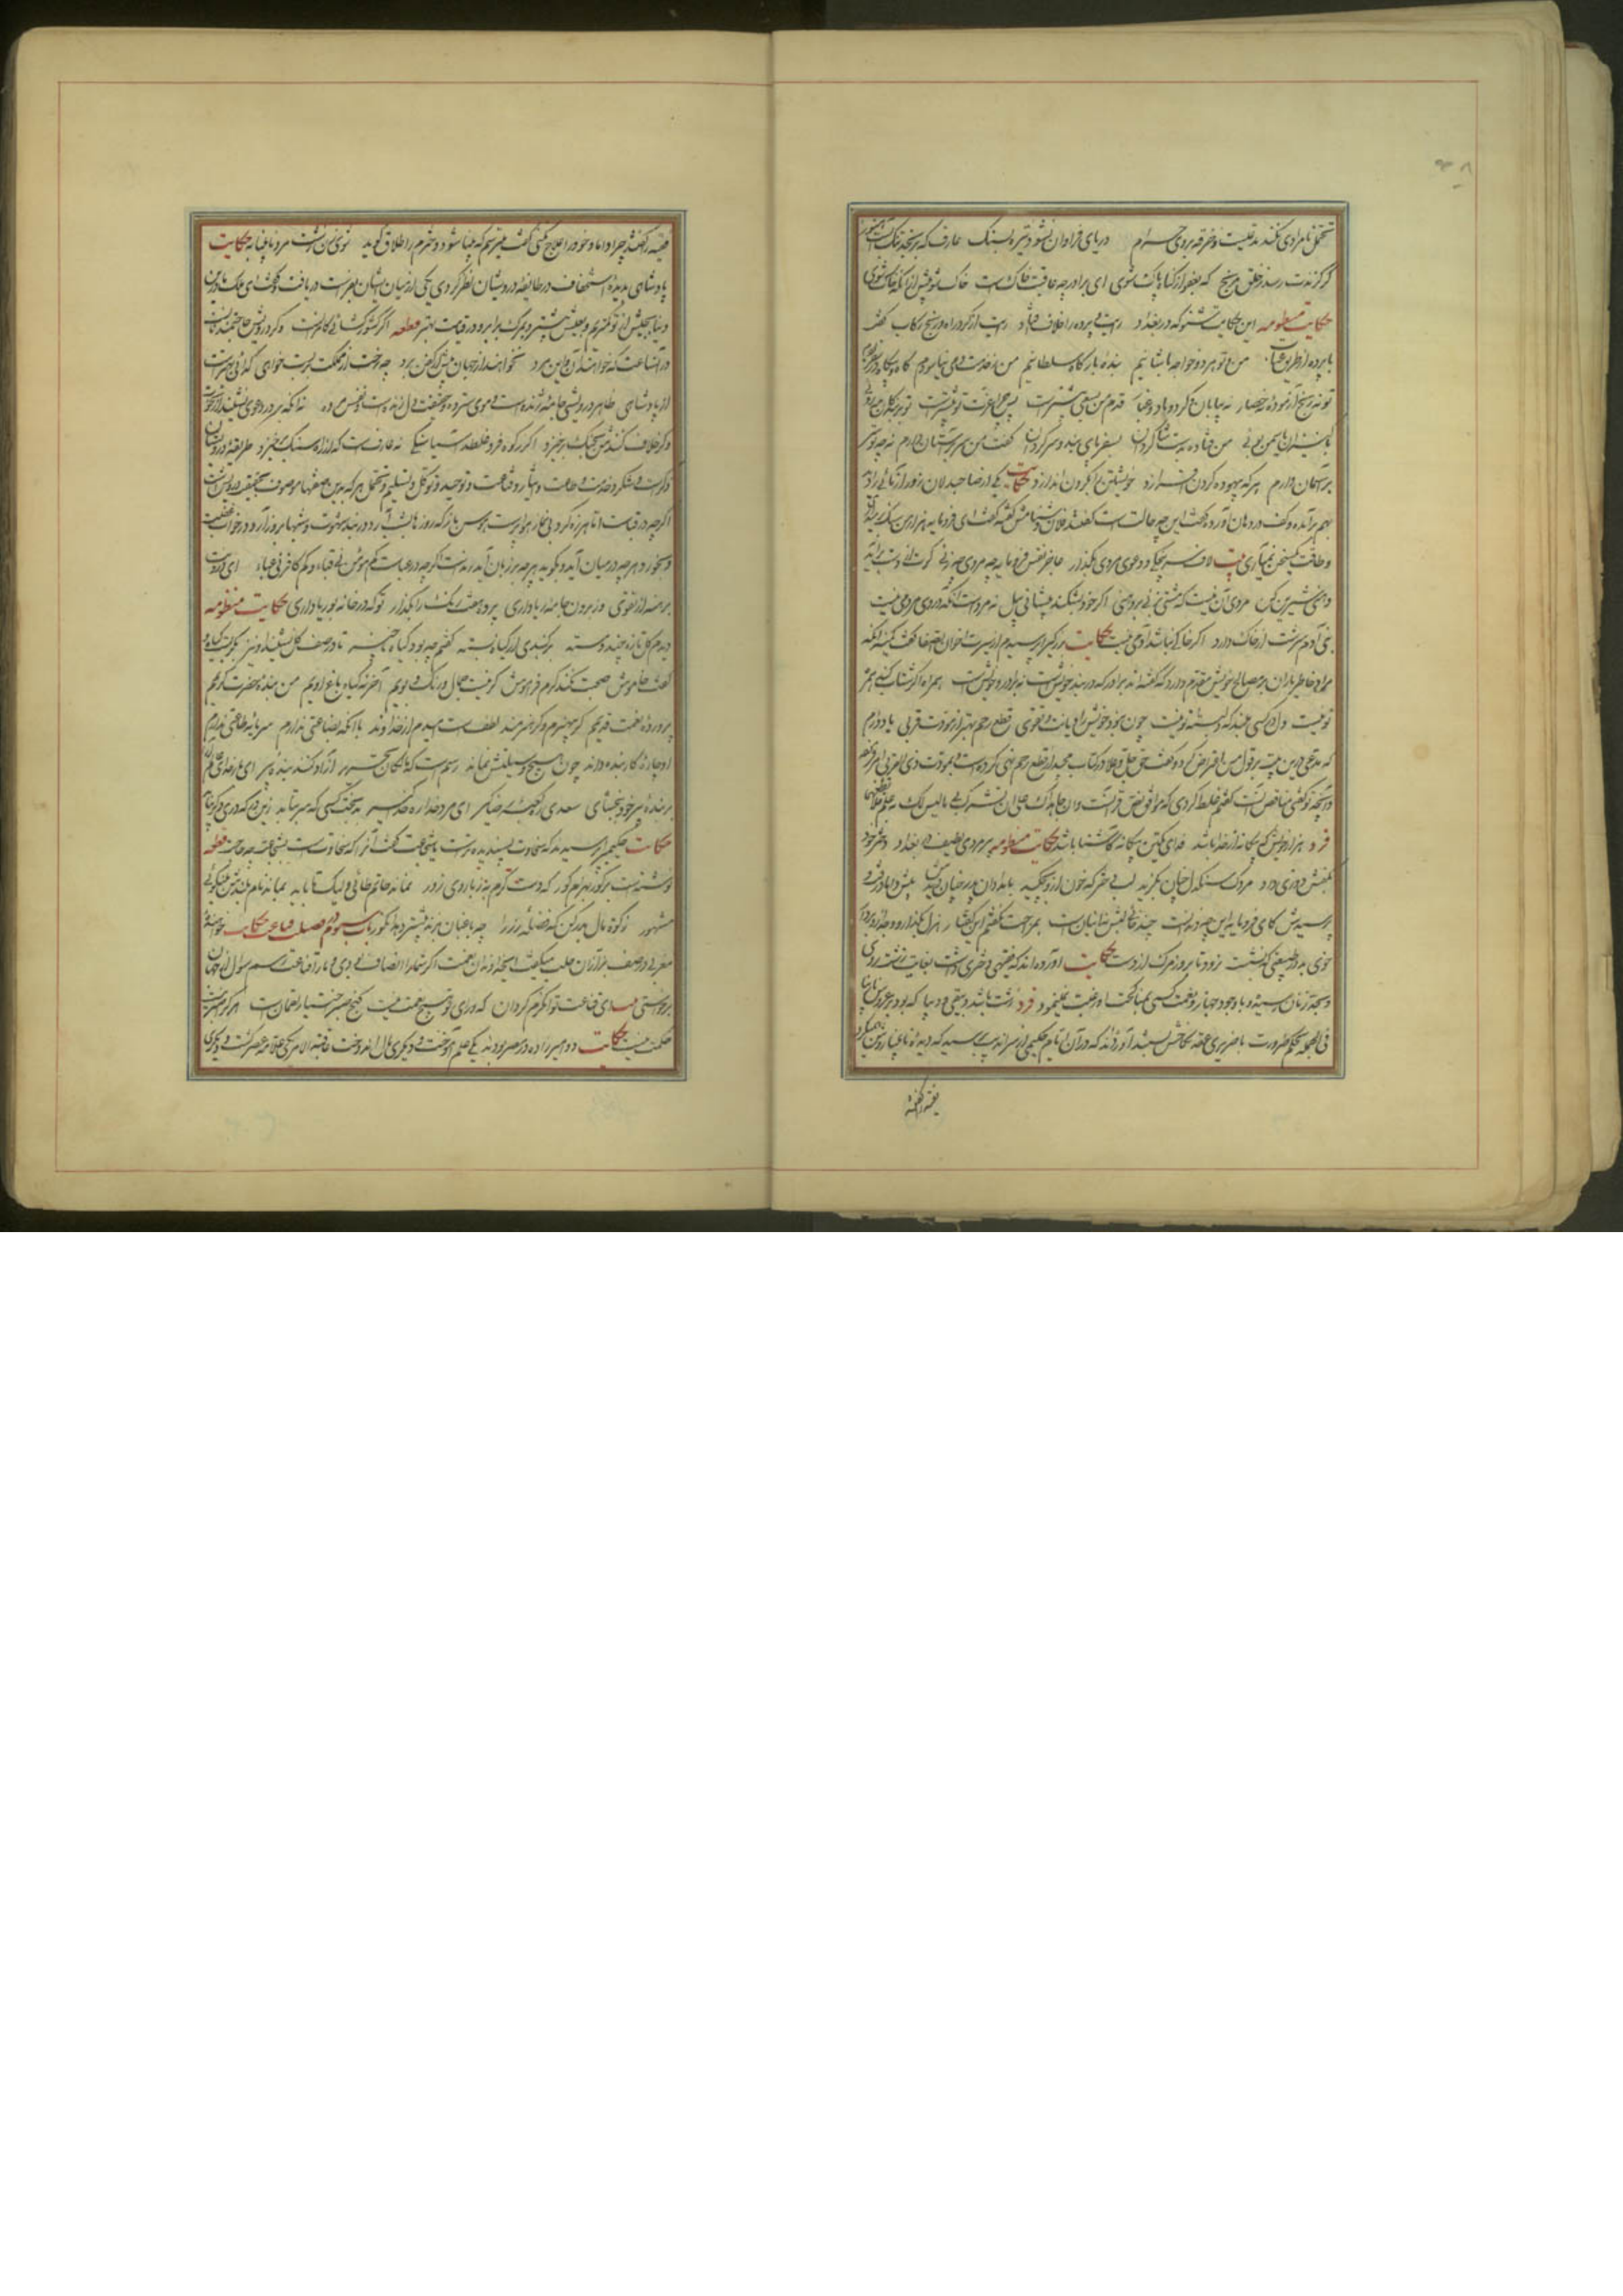 تحمل نامرادی نکند مدعیست و خرقه بروی حرام دریای فراوان نشود تیره بسنگ عارف که برنجد تنک آبست هنوز
گر گزندت رسد ز خلق مرنج که بعفو از گناه پاک شوی ای برادر چو عاقبت خاک است خاک شو پیش از آنکه خاک شوی
حکایت منظومه این حکایت شنو که در بغداد رایت و پرده را خلاف افتاد رایت از گرد راه و رنج رکاب گفت
با پرده از طریق عتاب من و تو هر دو خواجه تاشانیم بنده بارگاه سلطانیم من ز خدمت دمی نیاسودم گاه و بیگاه در سفر بودم
تو نه رنج آزموده نه حصار نه بیابان و گرد و باد و غبار قدم من بسعی پیشتر است پس چرا عزت تو بیشتر است تو بر
با کنیزان یاسمن بوئی من فتاده بدست شاگردان بسفر پای بند و سرگردان گفت من سر بر آستان دارم نه چو تو سر
بر آسمان دارم هر که بیهوده گردن افرازد خویشتن را بگردن اندازد حکایت یکی از صاحبدلان زورآزمائی را دید
بهم برآمده و کف در دهان آورده گفت این چه حالت است گفتند فلان دشنامش گفته گفت ای فرومایه هزار من سنگ بر میدارد
و طاقت سخن نمی آری لاف سرپنجگی و دعوی مردی بگذار عاجز نفس فرومایه چه مردی چه زنی گرت از دست برآید
دهنی شیرین کن مردی آن نیست که مشتی بزنی بر دهنی اگر خود بشکند پیشانی پیل نه مردست آنکه در وی مردمی نیست
بنی آدم سرشت از خاک دارد اگر خاکی نباشد آدمی نیست حکایت بزرگی را پرسیدم از سیرت اخوان الصفا گفت کمینه آنکه
مراد خاطر یاران بر مصالح خویش مقدم دارد که گفته اند برادر که در بند خویش است نه برادر و نه خویش است همراه اگر شتاب کند همره
تو نیست دل در کسی مبند که دلبسته تو نیست چون نبود خویش را دیانت و تقوی قطع رحم بهتر از مودت قربی یاد دارم
که مدعی درین بیت بر قول من اعتراض کرد و گفت حق جل و علا در کتاب مجید از قطع رحم نهی کرده است و بمودت ذی القربی امر فرموده
و آنچه تو گفتی مناقض آنست گفتم غلط کردی که موافق نص قرآنست وان جاهداک علی ان تشرک بی ما لیس لک به علم فلا تطعهما
فرد هزار خویش که بیگانه از خدا باشد فدای یکتن بیگانه کاشنا باشد حکایت منظومه پیرمردی لطیف در بغداد دختر خود
بکفش دوزی داد مردک سنگدل چنان بگزید لب دختر که خون ازو بچکید بامدادان پدر چنان دیدش پیش داماد رفت و
پرسیدش کای فرومایه این چه دندانست چند خائی لبش نه انبانست بمزاحت نگفتم این گفتار هزل بگذار و جد ازو بردار
خوی بد در طبیعتی که نشست نرود تا بروز مرگ از دست حکایت آورده اند که فقیهی دختری داشت بغایت زشت روی
و بحد زنان رسیده و با وجود جهاز و نعمت کسی بمناکحت او رغبت نمینمود فرد زشت باشد دبیقی و دیبا که بود بر عروس نازیبا
فی الجمله بحکم ضرورت با ضریری عقد نکاحش بستند آورده اند که در آن ایام حکیمی از سراندیب برسید که دیده نابینا روشن میکرد
فقیه را گفتند
فقیه را گفتند چرا داماد خود را علاج نکنی گفت میترسم که بینا شود و دخترم را طلاق گوید شوی زن زشت رو نابینا به حکایت
پادشاهی بدیده استخفاف در طایفه درویشان نظر کردی یکی از میان ایشان بفراست دریافت و گفت ای ملک ما درین
دنیا بجیش از تو کمتریم و بعیش بیشتر و بمرگ برابر و در قیامت بهتر قطعه اگر کشور گشای کامرانست وگر درویش حاجتمند نانست
در آنساعت که خواهند آن و این مرد نخواهند از جهان بیش از کفن برد چو رخت از مملکت بربست خواهی گدائی بهتر است
از پادشاهی ظاهر درویشی جامه ژنده است و موی سترده و حقیقت آن دل زنده است و نفس مرده نه آنکه بر در دعوی نشیند از خلقی
وگر خلاف کنندش بجنگ برخیزد اگر ز کوه فرو غلطد آسیا سنگی نه عارف است که از راه سنگ برخیزد طریق درویشان
ذکر است و شکر و خدمت و طاعت و ایثار و قناعت و توحید و توکل و تسلیم و تحمل هر که بدین صفتها موصوف است بحقیقت درویش است
اگر چه در قباست اما هرزه گرد بی نماز هواپرست هوس باز که روزها بشب آرد در بند شهوت و شبها بروز آرد در خواب غفلت
و بخورد هر چه در میان آید و بگوید هر چه بر زبان آید رندست اگر چه در عباست ای درونت
برهنه از تقوی وز برون جامه ریا داری پرده هفت رنگ را بگذار تو که در خانه بوریا داری حکایت منظومه
دیدم گل تازه چند دسته بر گنبدی از گیاه بسته گفتم چه بود گیاه ناچیز تا در صف گل نشیند او نیز بگریست گیاه و
گفت خاموش صحبت نکند کرم فراموش گر نیست جمال و رنگ و بویم آخر نه گیاه باغ اویم من بنده حضرت کریمم
پرورده نعمت قدیمم گر بیهنرم وگر هنرمند لطف است امیدم از خداوند با آنکه بضاعتی ندارم سرمایه طاعتی ندارم
او چاره کار بنده داند چون هیچ وسیلتش نماند رسم است که مالکان تحریر آزاد کنند بنده پیر ای بار خدای عالم آرای
بر بنده پیر خود ببخشای سعدی ره کعبه رضا گیر ای مرد خدا ره خدا گیر بدبخت کسی که سر بتابد زین در که دری دگر نیابد
حکایت حکیمی را پرسیدند که سخاوت پسندیده تر است یا شجاعت گفت آنرا که سخاوت است بشجاعت چه حاجت قطعه
نوشته است بر گور بهرام گور که دست کرم به ز بازوی زور نماند حاتم طائی ولیک تا بابد بماند نام بلندش به نیکوئی
مشهور زکوة مال بدر کن که فضله رز را چو باغبان بزند بیشتر دهد انگور باب سوم در فضیلت قناعت حکایت خواهنده
مغربی در صف بزازان حلب میگفت ای خداوندان نعمت اگر شما را انصاف بودی و ما را قناعت رسم سوال از جهان
برخاستی ای قناعت توانگرم گردان که ورای تو هیچ نعمت نیست گنج صبر اختیار لقمان است هر کرا صبر نیست
حکمت نیست حکایت دو امیرزاده در مصر بودند یکی علم آموخت و دیگری مال اندوخت عاقبة الامر یکی علامه عصر گشت و دیگری